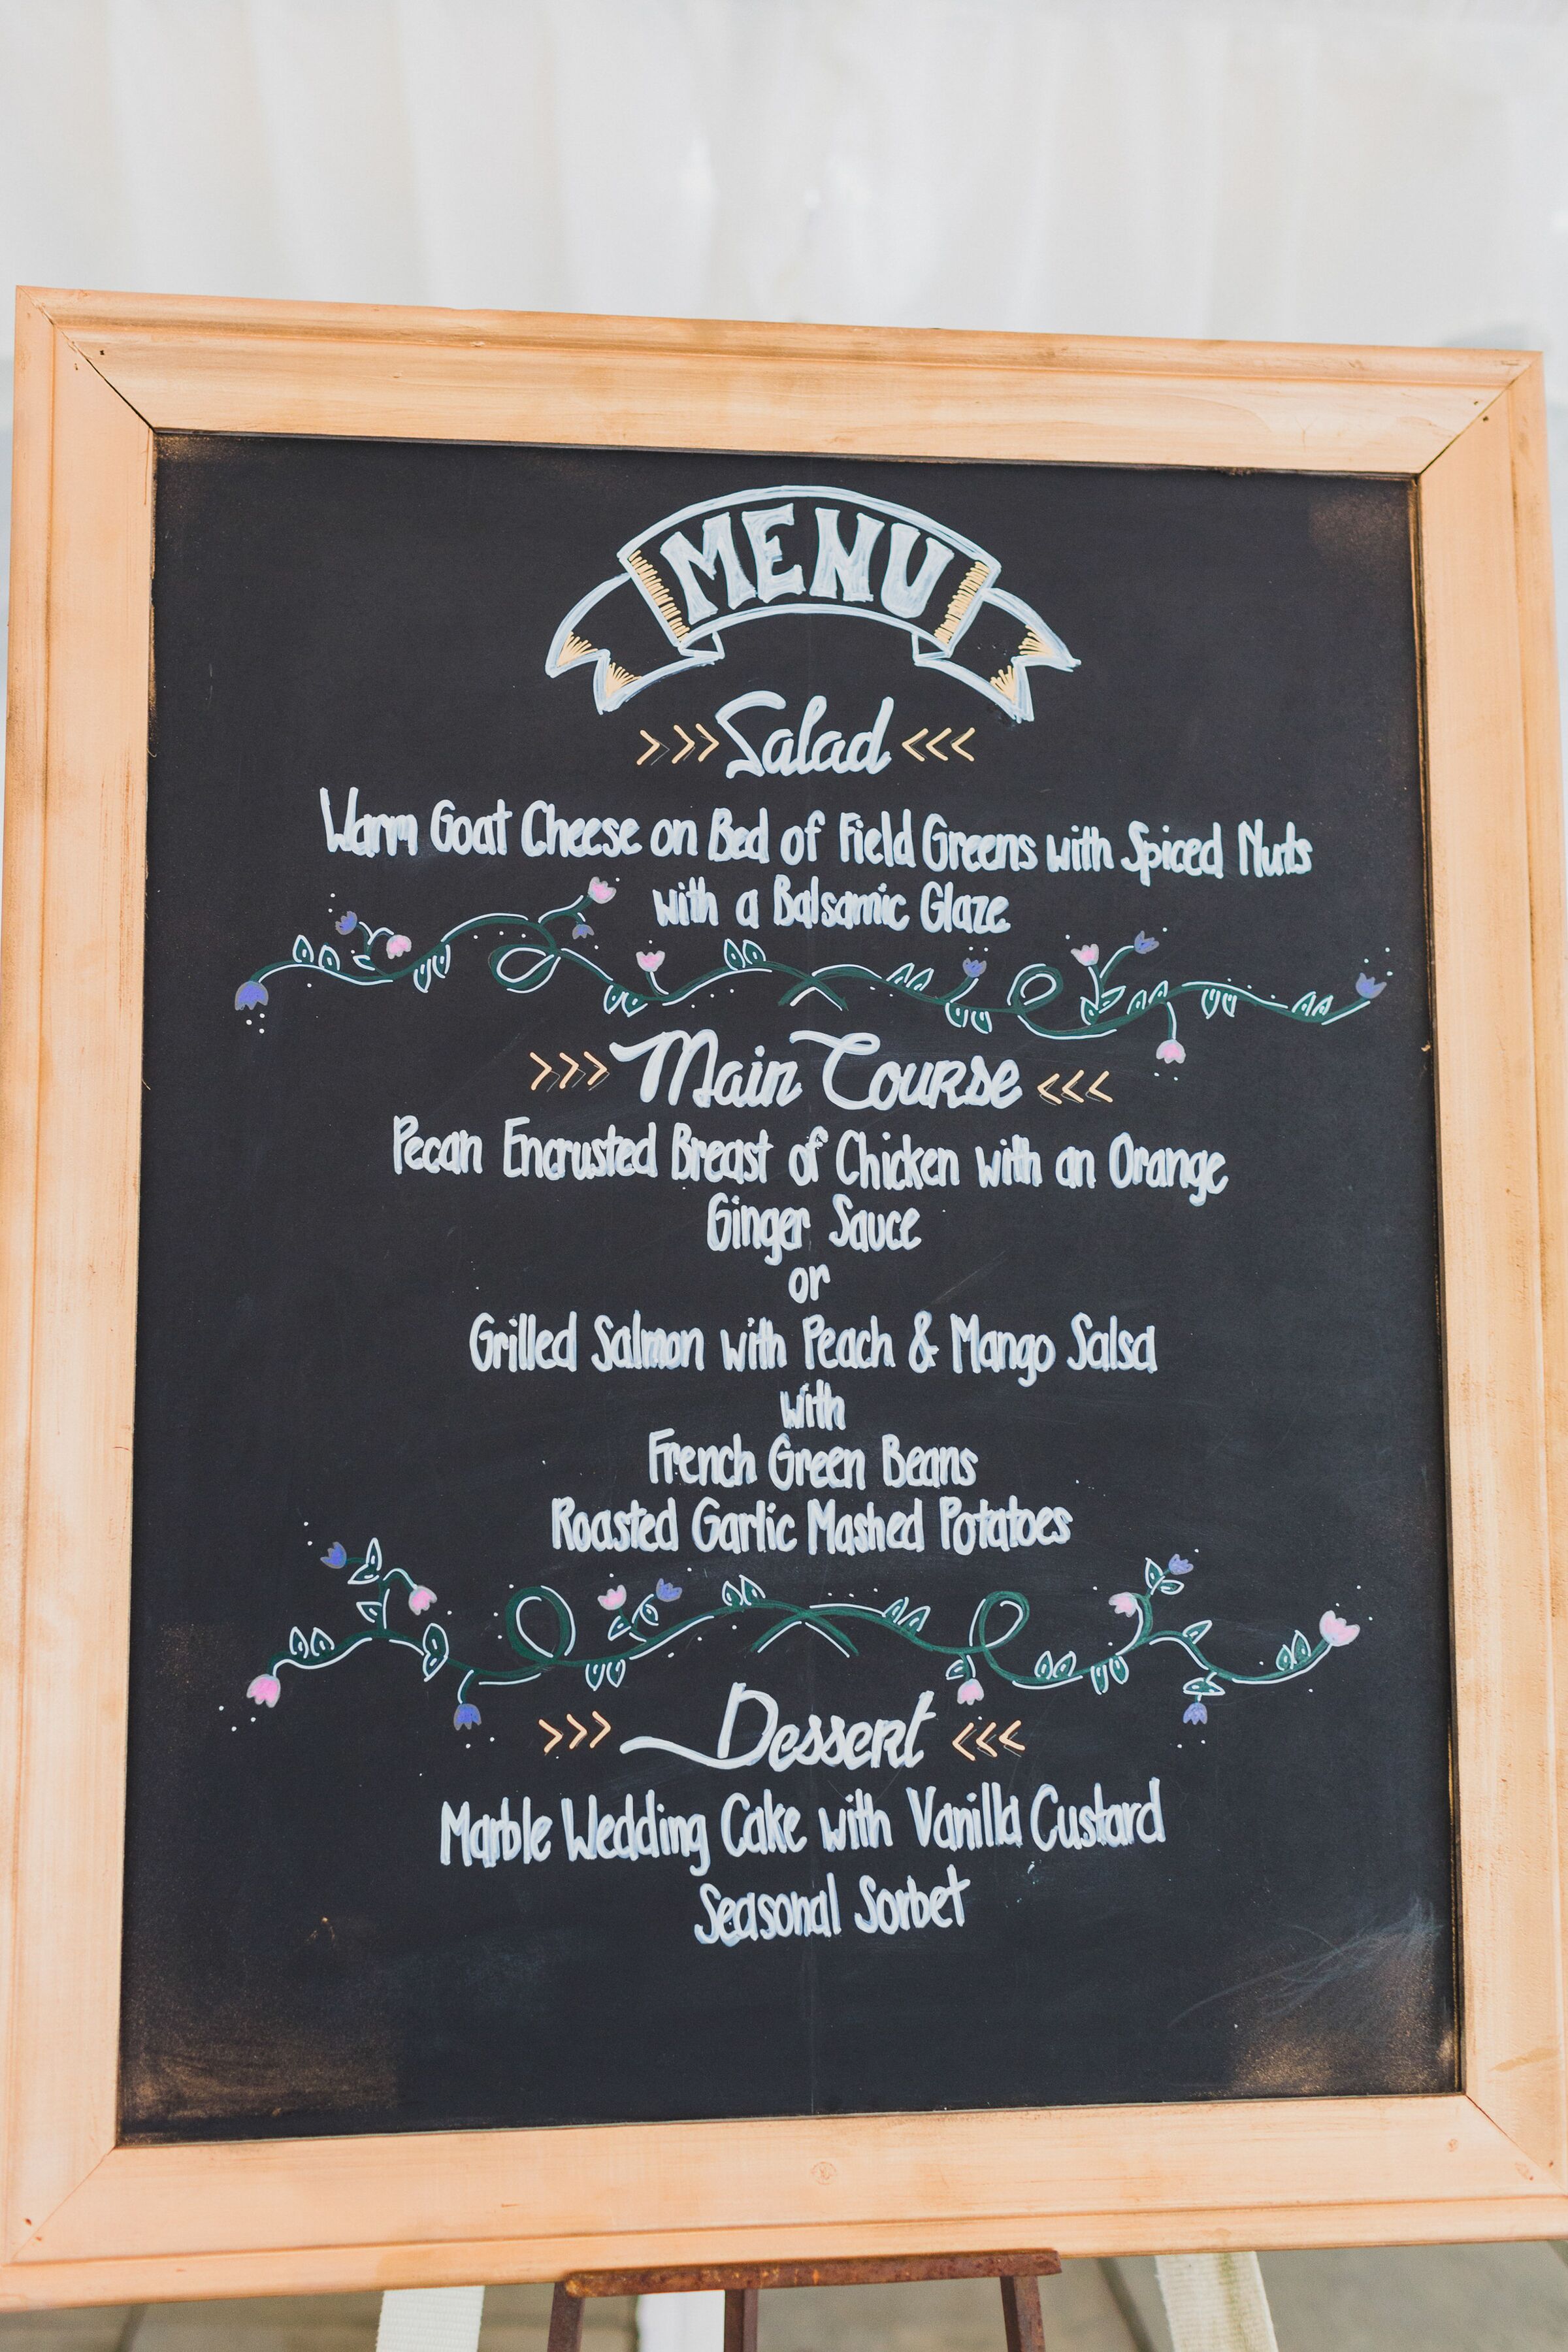 MENU
>>> Salad <<<
Warm Goat Cheese on Bed of Field Greens with Spiced Nuts
with a Balsamic Glaze
>>> Main Course <<<
Pecan Encrusted Breast of Chicken with an Orange
Ginger Sauce
or
Grilled Salmon with Peach & Mango Salsa
with
French Green Beans
Roasted Garlic Mashed Potatoes
>>> Dessert <<<
Marble Wedding Cake with Vanilla Custard
Seasonal Sorbet